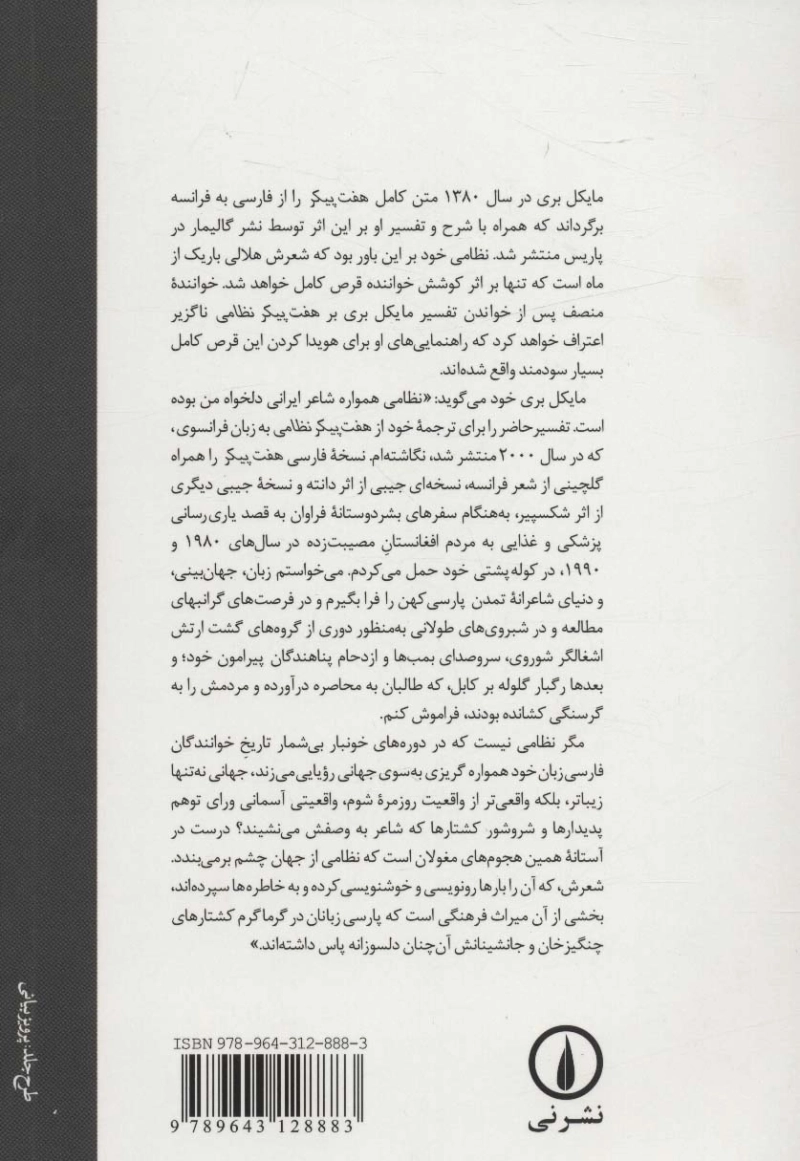 مایکل بری در سال ۱۳۸۰ متن کامل هفت‌پیکر را از فارسی به فرانسه
برگرداند که همراه با شرح و تفسیر او بر این اثر توسط نشر گالیمار در
پاریس منتشر شد. نظامی خود بر این باور بود که شعرش هلالی باریک از
ماه است که تنها بر اثر کوشش خواننده قرص کامل خواهد شد. خوانندهٔ
منصف پس از خواندن تفسیر مایکل بری بر هفت‌پیکر نظامی ناگزیر
اعتراف خواهد کرد که راهنمایی‌های او برای هویدا کردن این قرص کامل
بسیار سودمند واقع شده‌اند.
مایکل بری خود می‌گوید: «نظامی همواره شاعر ایرانی دلخواه من بوده
است. تفسیر حاضر را برای ترجمهٔ خود از هفت‌پیکر نظامی به زبان فرانسوی،
که در سال ۲۰۰۰ منتشر شد، نگاشته‌ام. نسخهٔ فارسی هفت‌پیکر را همراه
گلچینی از شعر فرانسه، نسخه‌ای جیبی از اثر دانته و نسخهٔ جیبی دیگری
از اثر شکسپیر، به‌هنگام سفرهای بشردوستانهٔ فراوان به قصد یاری‌رسانی
پزشکی و غذایی به مردم افغانستانِ مصیبت‌زده در سال‌های ۱۹۸۰ و
۱۹۹۰، در کوله‌پشتی خود حمل می‌کردم. می‌خواستم زبان، جهان‌بینی،
و دنیای شاعرانهٔ تمدن پارسی کهن را فرا بگیرم و در فرصت‌های گرانبهای
مطالعه و در شبروی‌های طولانی به‌منظور دوری از گروه‌های گشت ارتش
اشغالگر شوروی، سروصدای بمب‌ها و ازدحام پناهندگان پیرامون خود؛ و
بعدها رگبار گلوله بر کابل، که طالبان به محاصره درآورده و مردمش را به
گرسنگی کشانده بودند، فراموش کنم.
مگر نظامی نیست که در دوره‌های خونبار بی‌شمار تاریخِ خوانندگان
فارسی‌زبان خود همواره گریزی به‌سوی جهانی رؤیایی می‌زند، جهانی نه‌تنها
زیباتر، بلکه واقعی‌تر از واقعیت روزمرهٔ شوم، واقعیتی آسمانی ورای توهم
پدیدارها و شروشور کشتارها که شاعر به وصفش می‌نشیند؟ درست در
آستانهٔ همین هجوم‌های مغولان است که نظامی از جهان چشم برمی‌بندد.
شعرش، که آن را بارها رونویسی و خوشنویسی کرده و به خاطره‌ها سپرده‌اند،
بخشی از آن میراث فرهنگی است که پارسی زبانان در گرماگرم کشتارهای
چنگیزخان و جانشینانش آن‌چنان دلسوزانه پاس داشته‌اند.»
طرح جلد: پرویز بیانی
ISBN 978-964-312-888-3
9 789643 128883
نشر نی